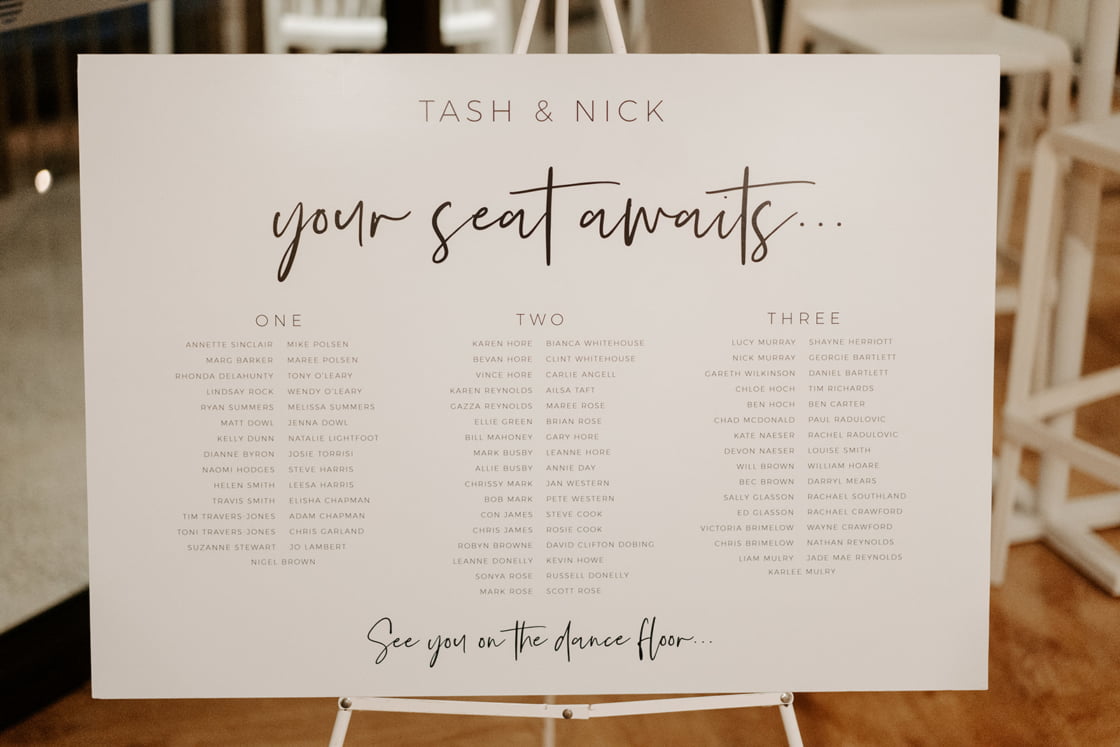 TASH & NICK
your seat awaits...
ONE
ANNETTE SINCLAIR MIKE POLSEN
MARG BARKER MAREE POLSEN
RHONDA DELAHUNTY TONY O'LEARY
LINDSAY ROCK WENDY O'LEARY
RYAN SUMMERS MELISSA SUMMERS
MATT DOWL JENNA DOWL
KELLY DUNN NATALIE LIGHTFOOT
DIANNE BYRON JOSIE TORRISI
NAOMI HODGES STEVE HARRIS
HELEN SMITH LEESA HARRIS
TRAVIS SMITH ELISHA CHAPMAN
TIM TRAVERS-JONES ADAM CHAPMAN
TONI TRAVERS-JONES CHRIS GARLAND
SUZANNE STEWART JO LAMBERT
NIGEL BROWN
TWO
KAREN HORE BIANCA WHITEHOUSE
BEVAN HORE CLINT WHITEHOUSE
VINCE HORE CARLIE ANGELL
KAREN REYNOLDS AILSA TAFT
GAZZA REYNOLDS MAREE ROSE
ELLIE GREEN BRIAN ROSE
BILL MAHONEY GARY HORE
MARK BUSBY LEANNE HORE
ALLIE BUSBY ANNIE DAY
CHRISSY MARK JAN WESTERN
BOB MARK PETE WESTERN
CON JAMES STEVE COOK
CHRIS JAMES ROSIE COOK
ROBYN BROWNE DAVID CLIFTON DOBING
LEANNE DONELLY KEVIN HOWE
SONYA ROSE RUSSELL DONELLY
MARK ROSE SCOTT ROSE
THREE
LUCY MURRAY SHAYNE HERRIOTT
NICK MURRAY GEORGIE BARTLETT
GARETH WILKINSON DANIEL BARTLETT
CHLOE HOCH TIM RICHARDS
BEN HOCH BEN CARTER
CHAD MCDONALD PAUL RADULOVIC
KATE NAESER RACHEL RADULOVIC
DEVON NAESER LOUISE SMITH
WILL BROWN WILLIAM HOARE
BEC BROWN DARRYL MEARS
SALLY GLASSON RACHAEL SOUTHLAND
ED GLASSON RACHAEL CRAWFORD
VICTORIA BRIMELOW WAYNE CRAWFORD
CHRIS BRIMELOW NATHAN REYNOLDS
LIAM MULRY JADE MAE REYNOLDS
KARLEE MULRY
See you on the dance floor...